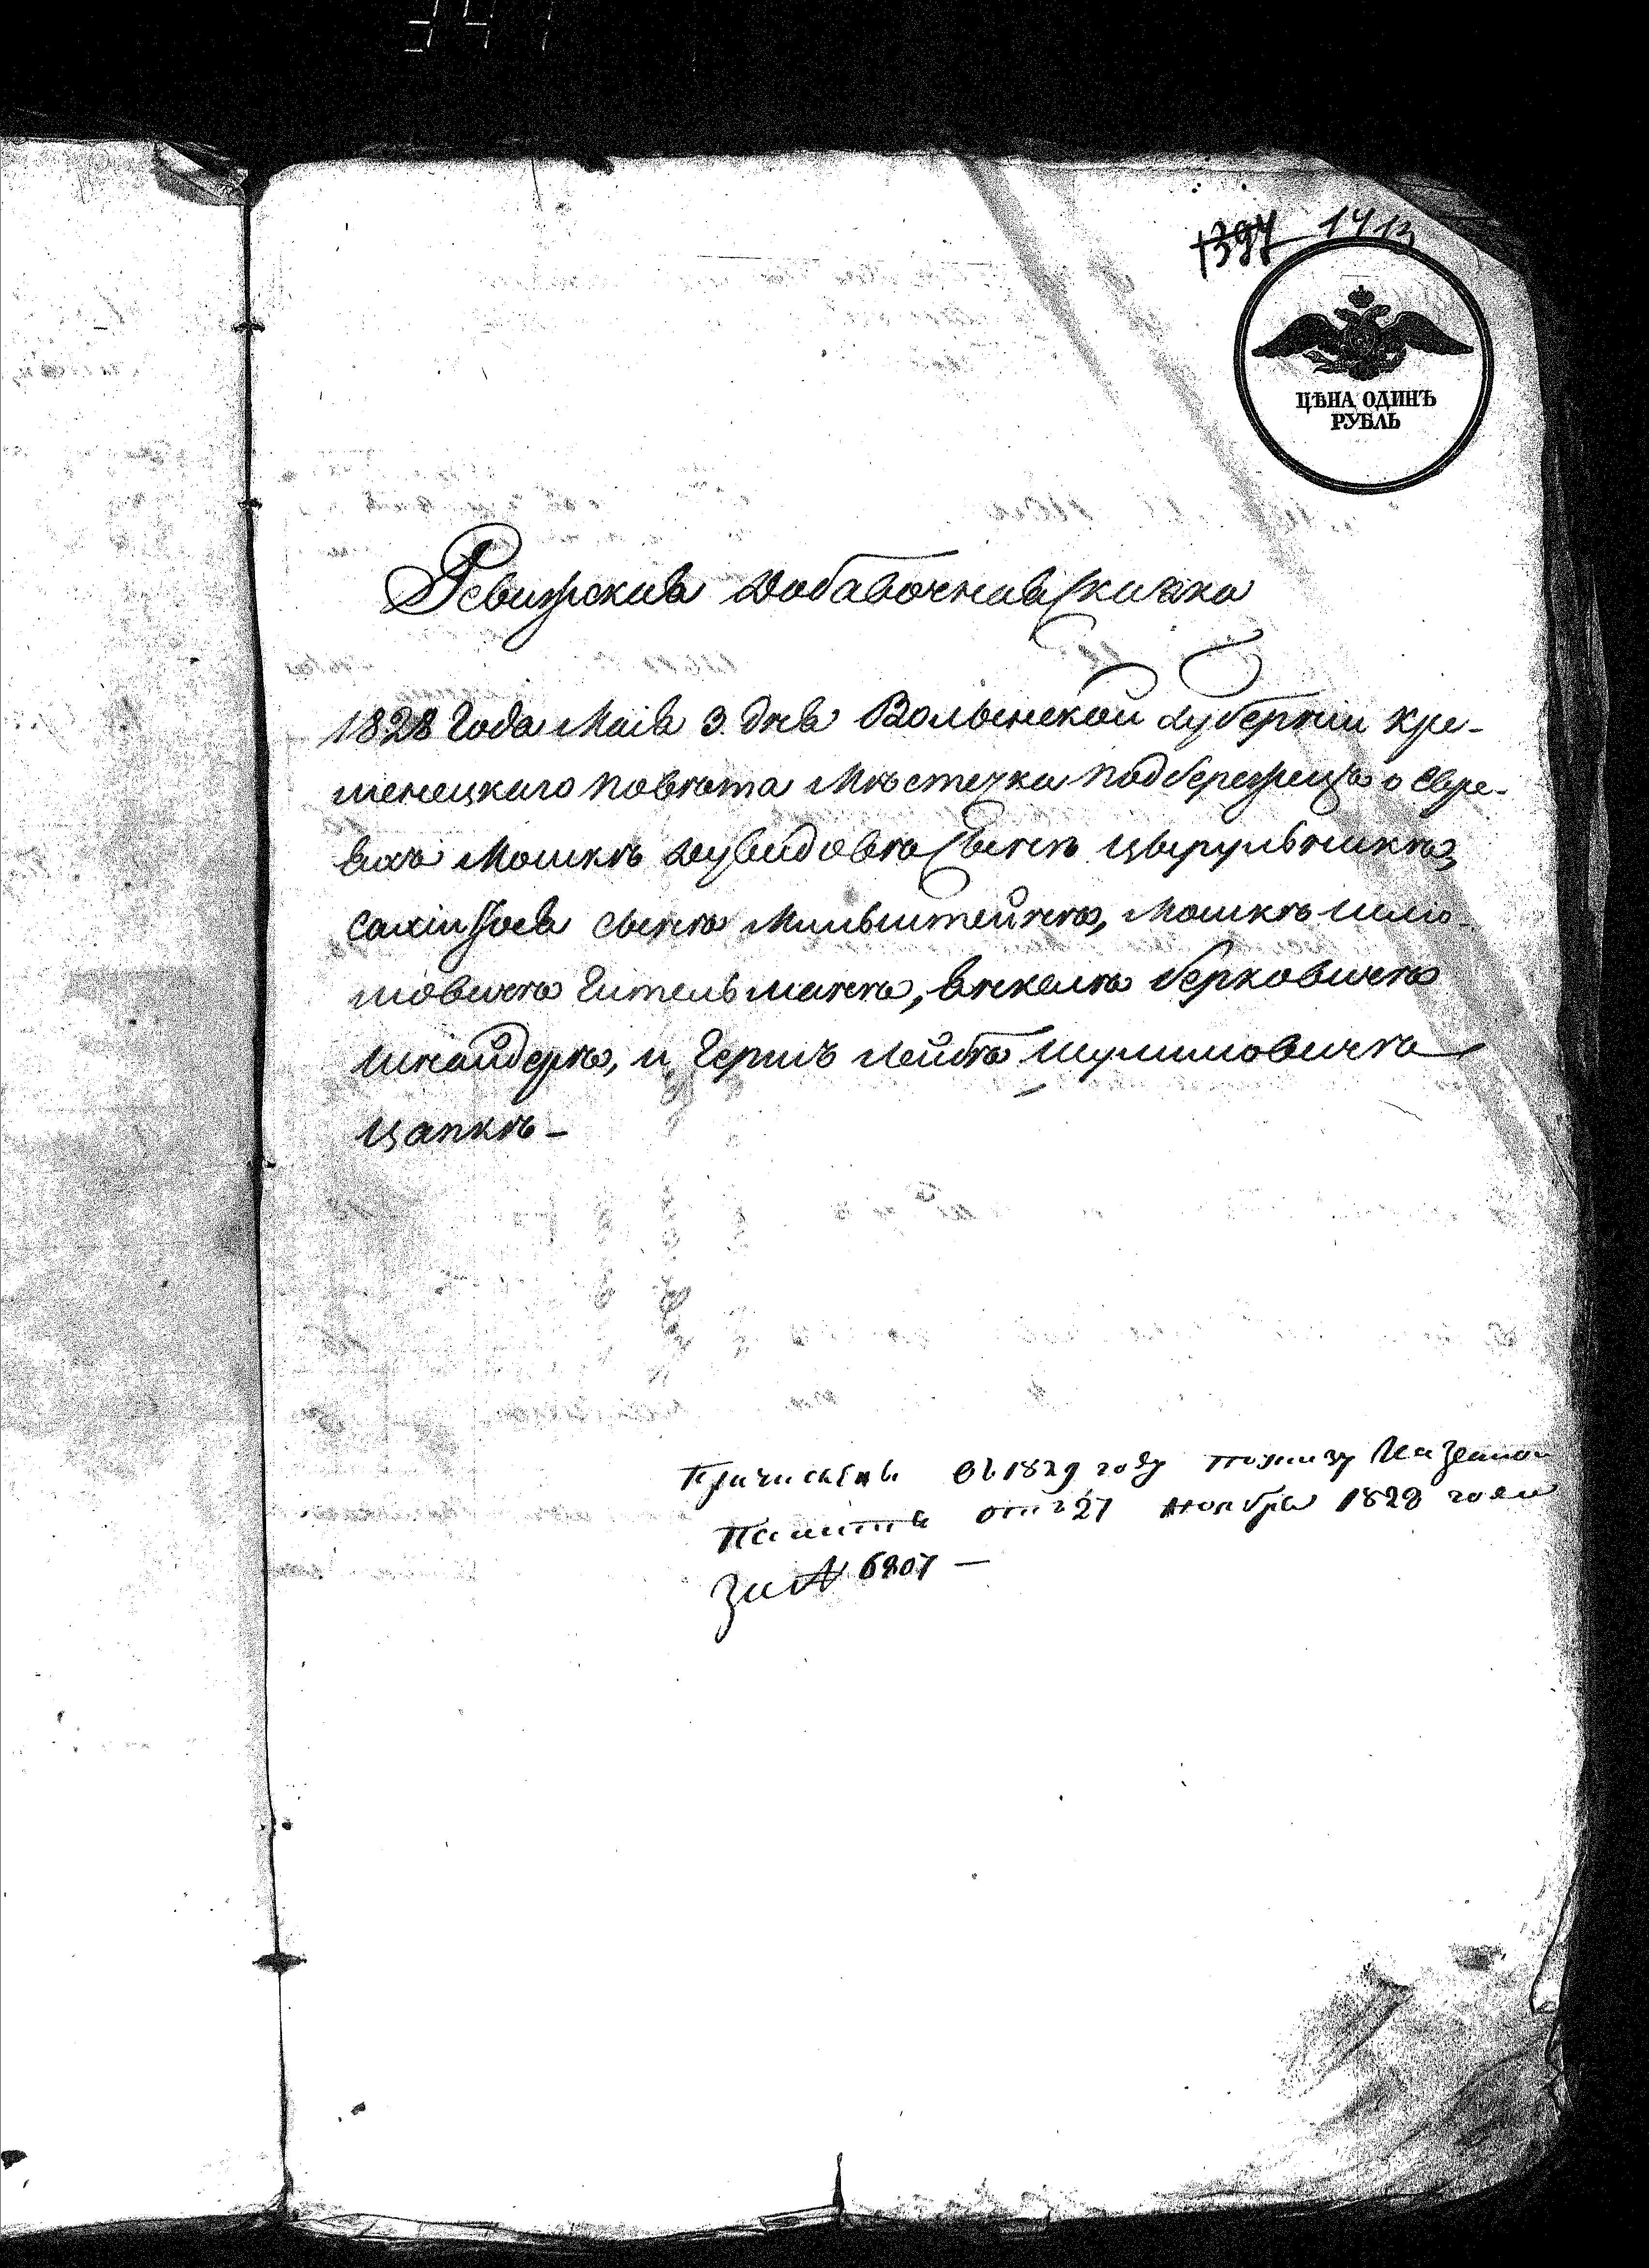 1397 1413
ЦѢНА ОДИНЪ
РУБЛЬ
Ревизская Добавочная Сказка
1828 Года Маія 3. дня Волынской Губерніи Кре-
менецкаго повѣта Мѣстечка Подберезецъ о Евре-
яхъ Мошкѣ Дувидовѣ Сынѣ Цырульникѣ,
сынѣ Мильштейнѣ, Мошкѣ Шлю-
мовичѣ Гительманѣ, Янкелѣ Берковичѣ
Шнайдерѣ, и Гершъ Лейбѣ Шулимовичѣ
Цапкѣ –
въ 1829 году Казенной
Палаты отъ 27 ноября 1828 года
За № 6807 –